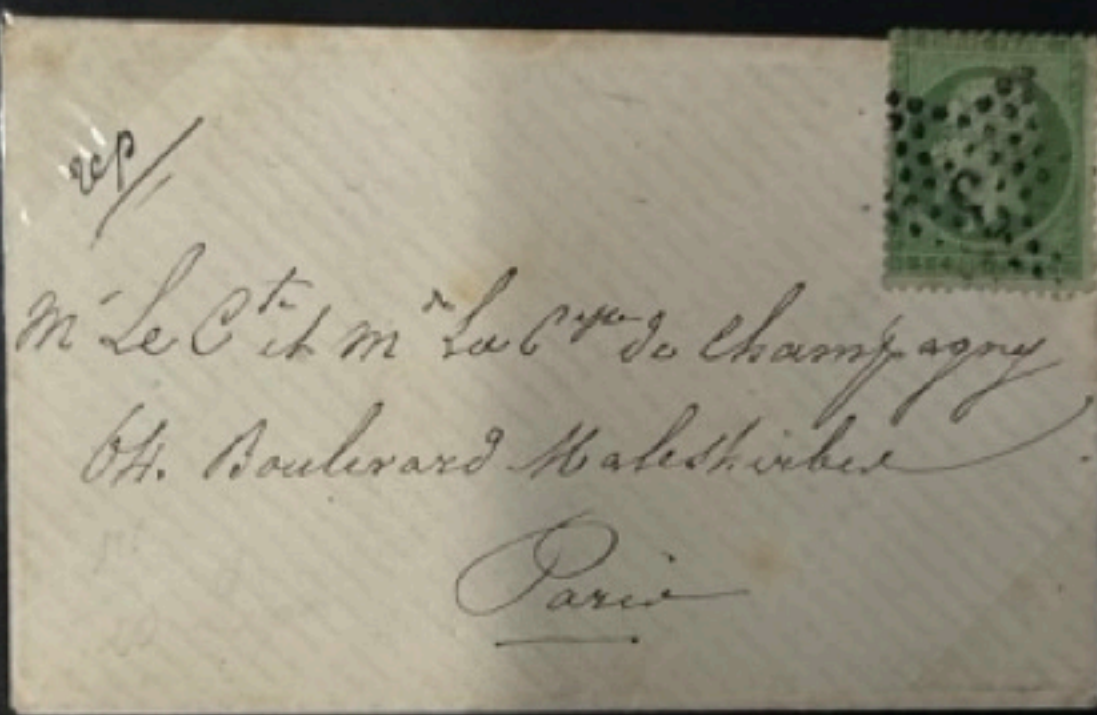 rep/
Mr Le Cte et Mde La Ctesse de Champagny
64. Boulevard Malesherbes
Paris